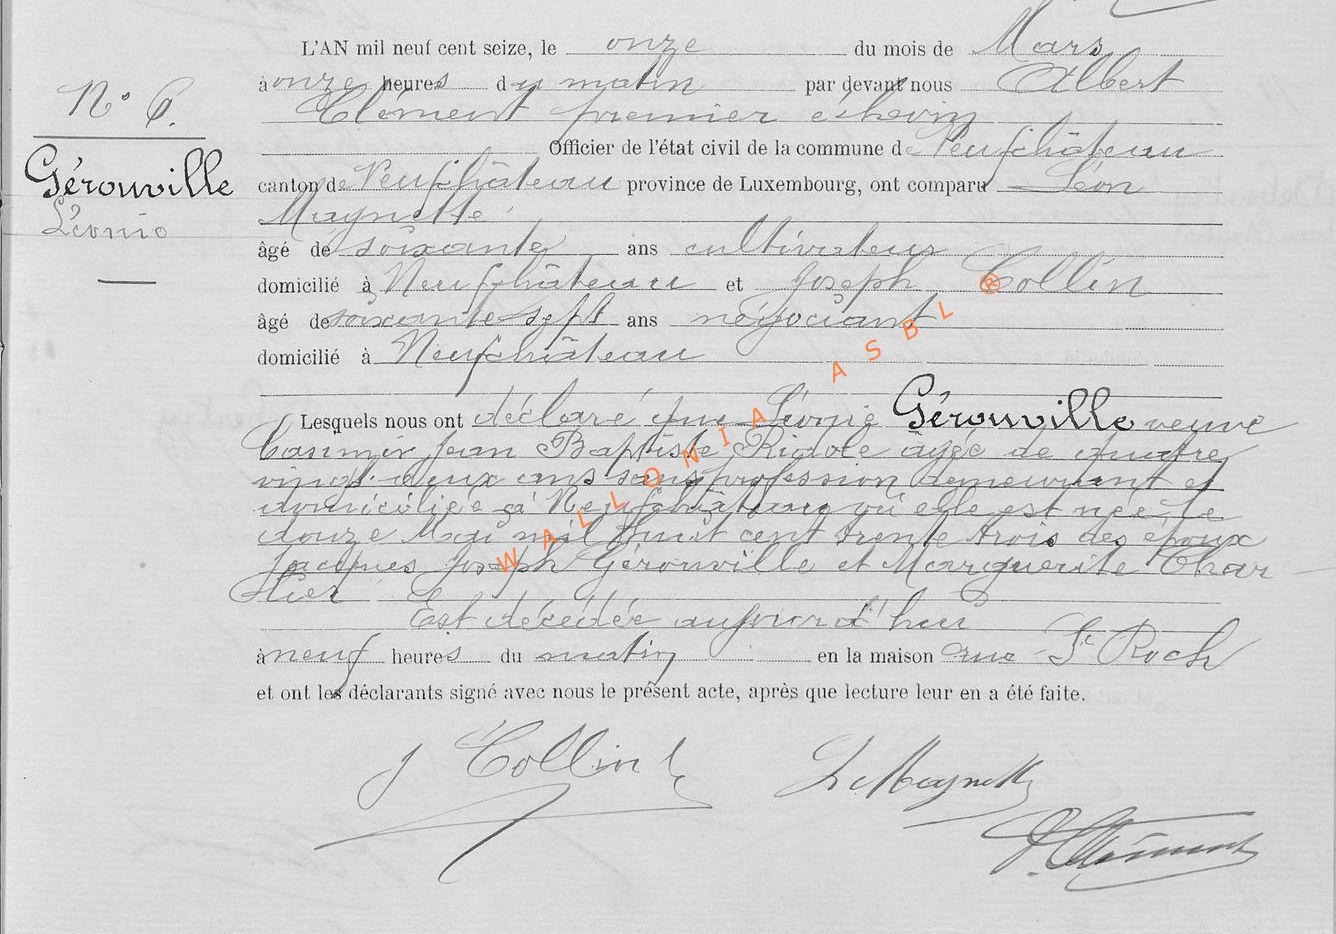 L'AN mil neuf cent seize, le onze du mois de Mars
à onze heures du matin par devant nous Albert
N° 6.
Clément premier échevin
Officier de l'état civil de la commune de Neufchâteau
Gérouville
canton de Neufchâteau province de Luxembourg, ont comparu Léon
Magnette
Léonie
âgé de soixante ans cultivateur
domicilié à Neufchâteau et Joseph Collin
âgé de soixante sept ans négociant
domicilié à Neufchâteau
Lesquels nous ont déclaré que Léonie Gérouville veuve
Casimir Jean Baptiste âgée de quatre
vingt deux ans sans profession demeurant et
domiciliée à Neufchâteau où elle est née le
douze Mai mil huit cent trente trois des époux
Jacques Joseph Gérouville et Marguerite Char
lier
Est décédée aujourd'hui
à neuf heures du matin en la maison rue St Roch
et ont les déclarants signé avec nous le présent acte, après que lecture leur en a été faite.
J Collin L Magnette
Clément
WALLONIA ASBL ®